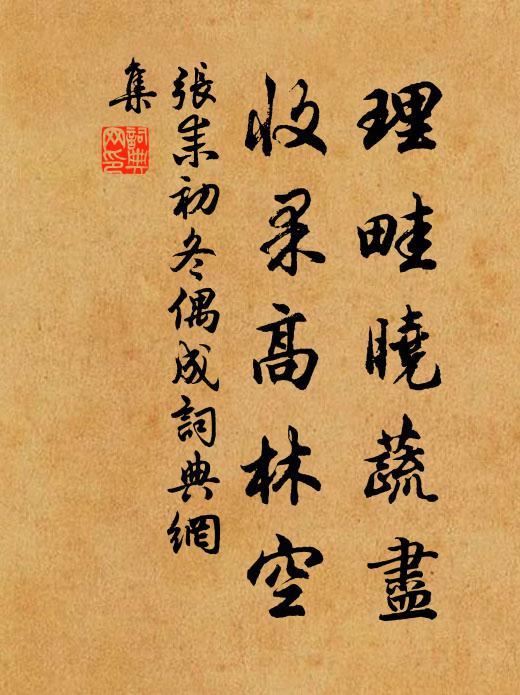 理畦曉蔬盡
收果高林空
張耒初冬偶成詞典網
集
詞典網印